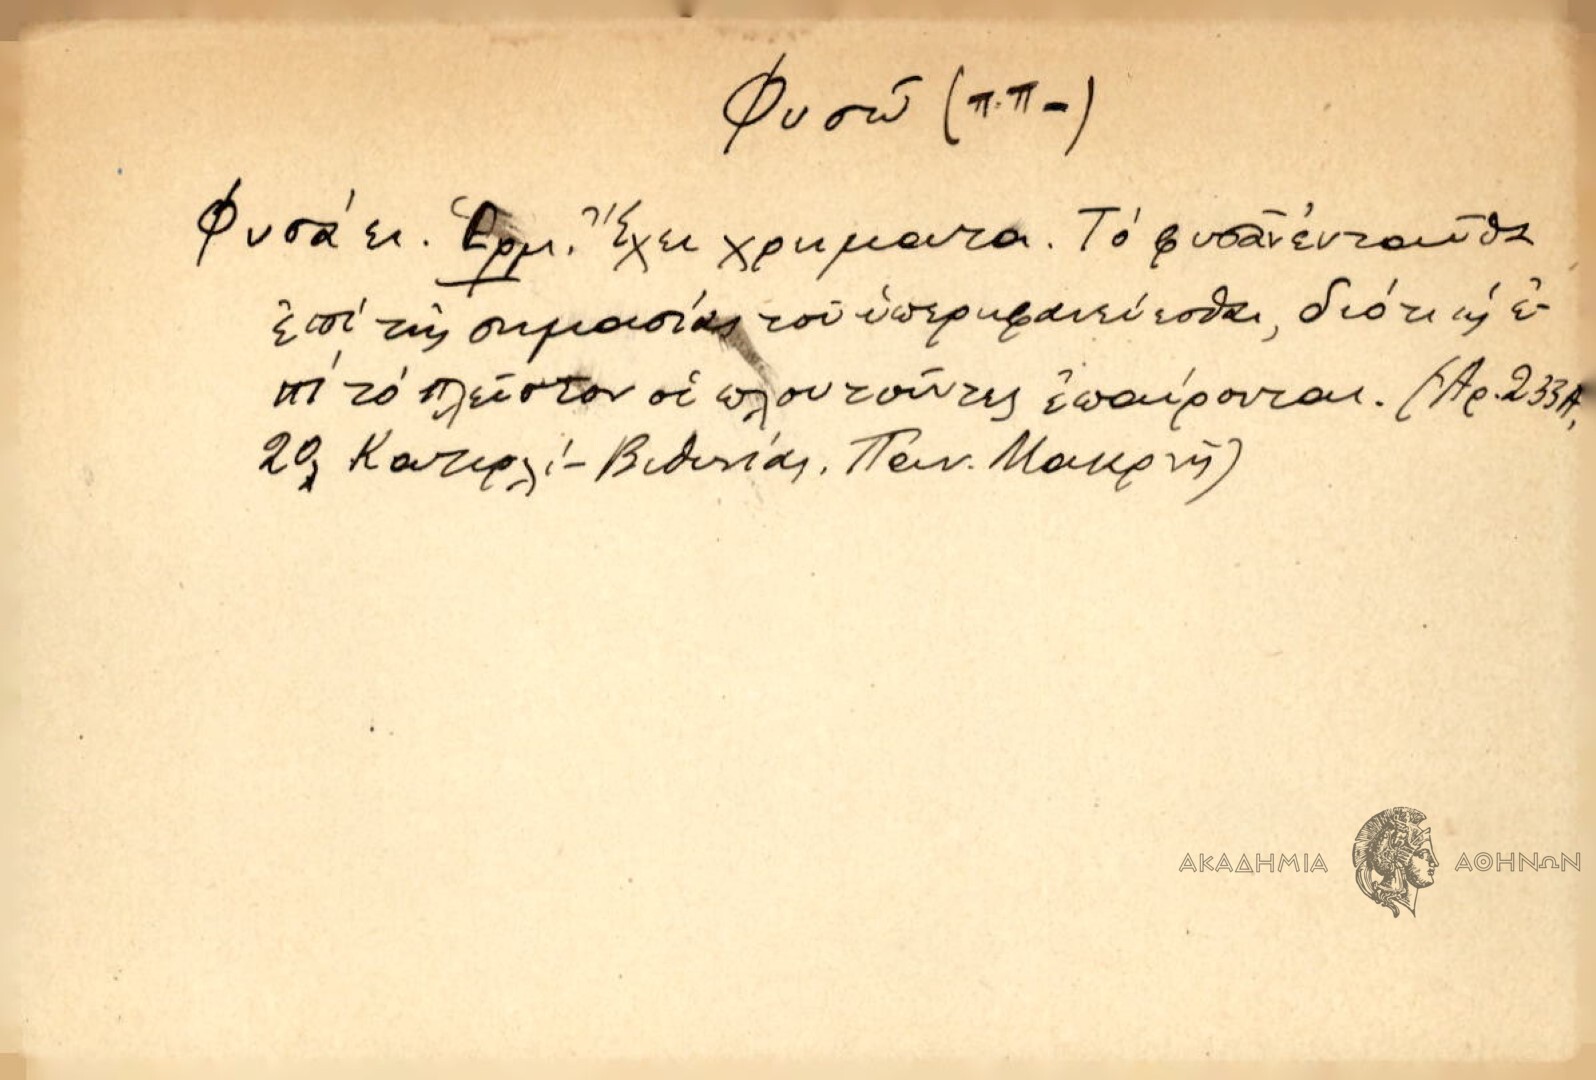 Φυσῶ (π.π-)
Φυσάει. Ἑρμ. Ἔχει χρήματα. Τό φυσᾶν ἐνταῦθα
ἐπί τῆς σημασίας τοῦ ὑπερηφανεύεσθαι, διότι ὡς ἐ-
πί τό πλεῖστον οἱ πλουτοῦντες ἐπαίρονται. (Ἀρ. 233Α,
20, Κατιρλί-Βιθυνίας. Παν. Μακρῆ)
ΑΚΑΔΗΜΙΑ ΑΘΗΝΩΝ